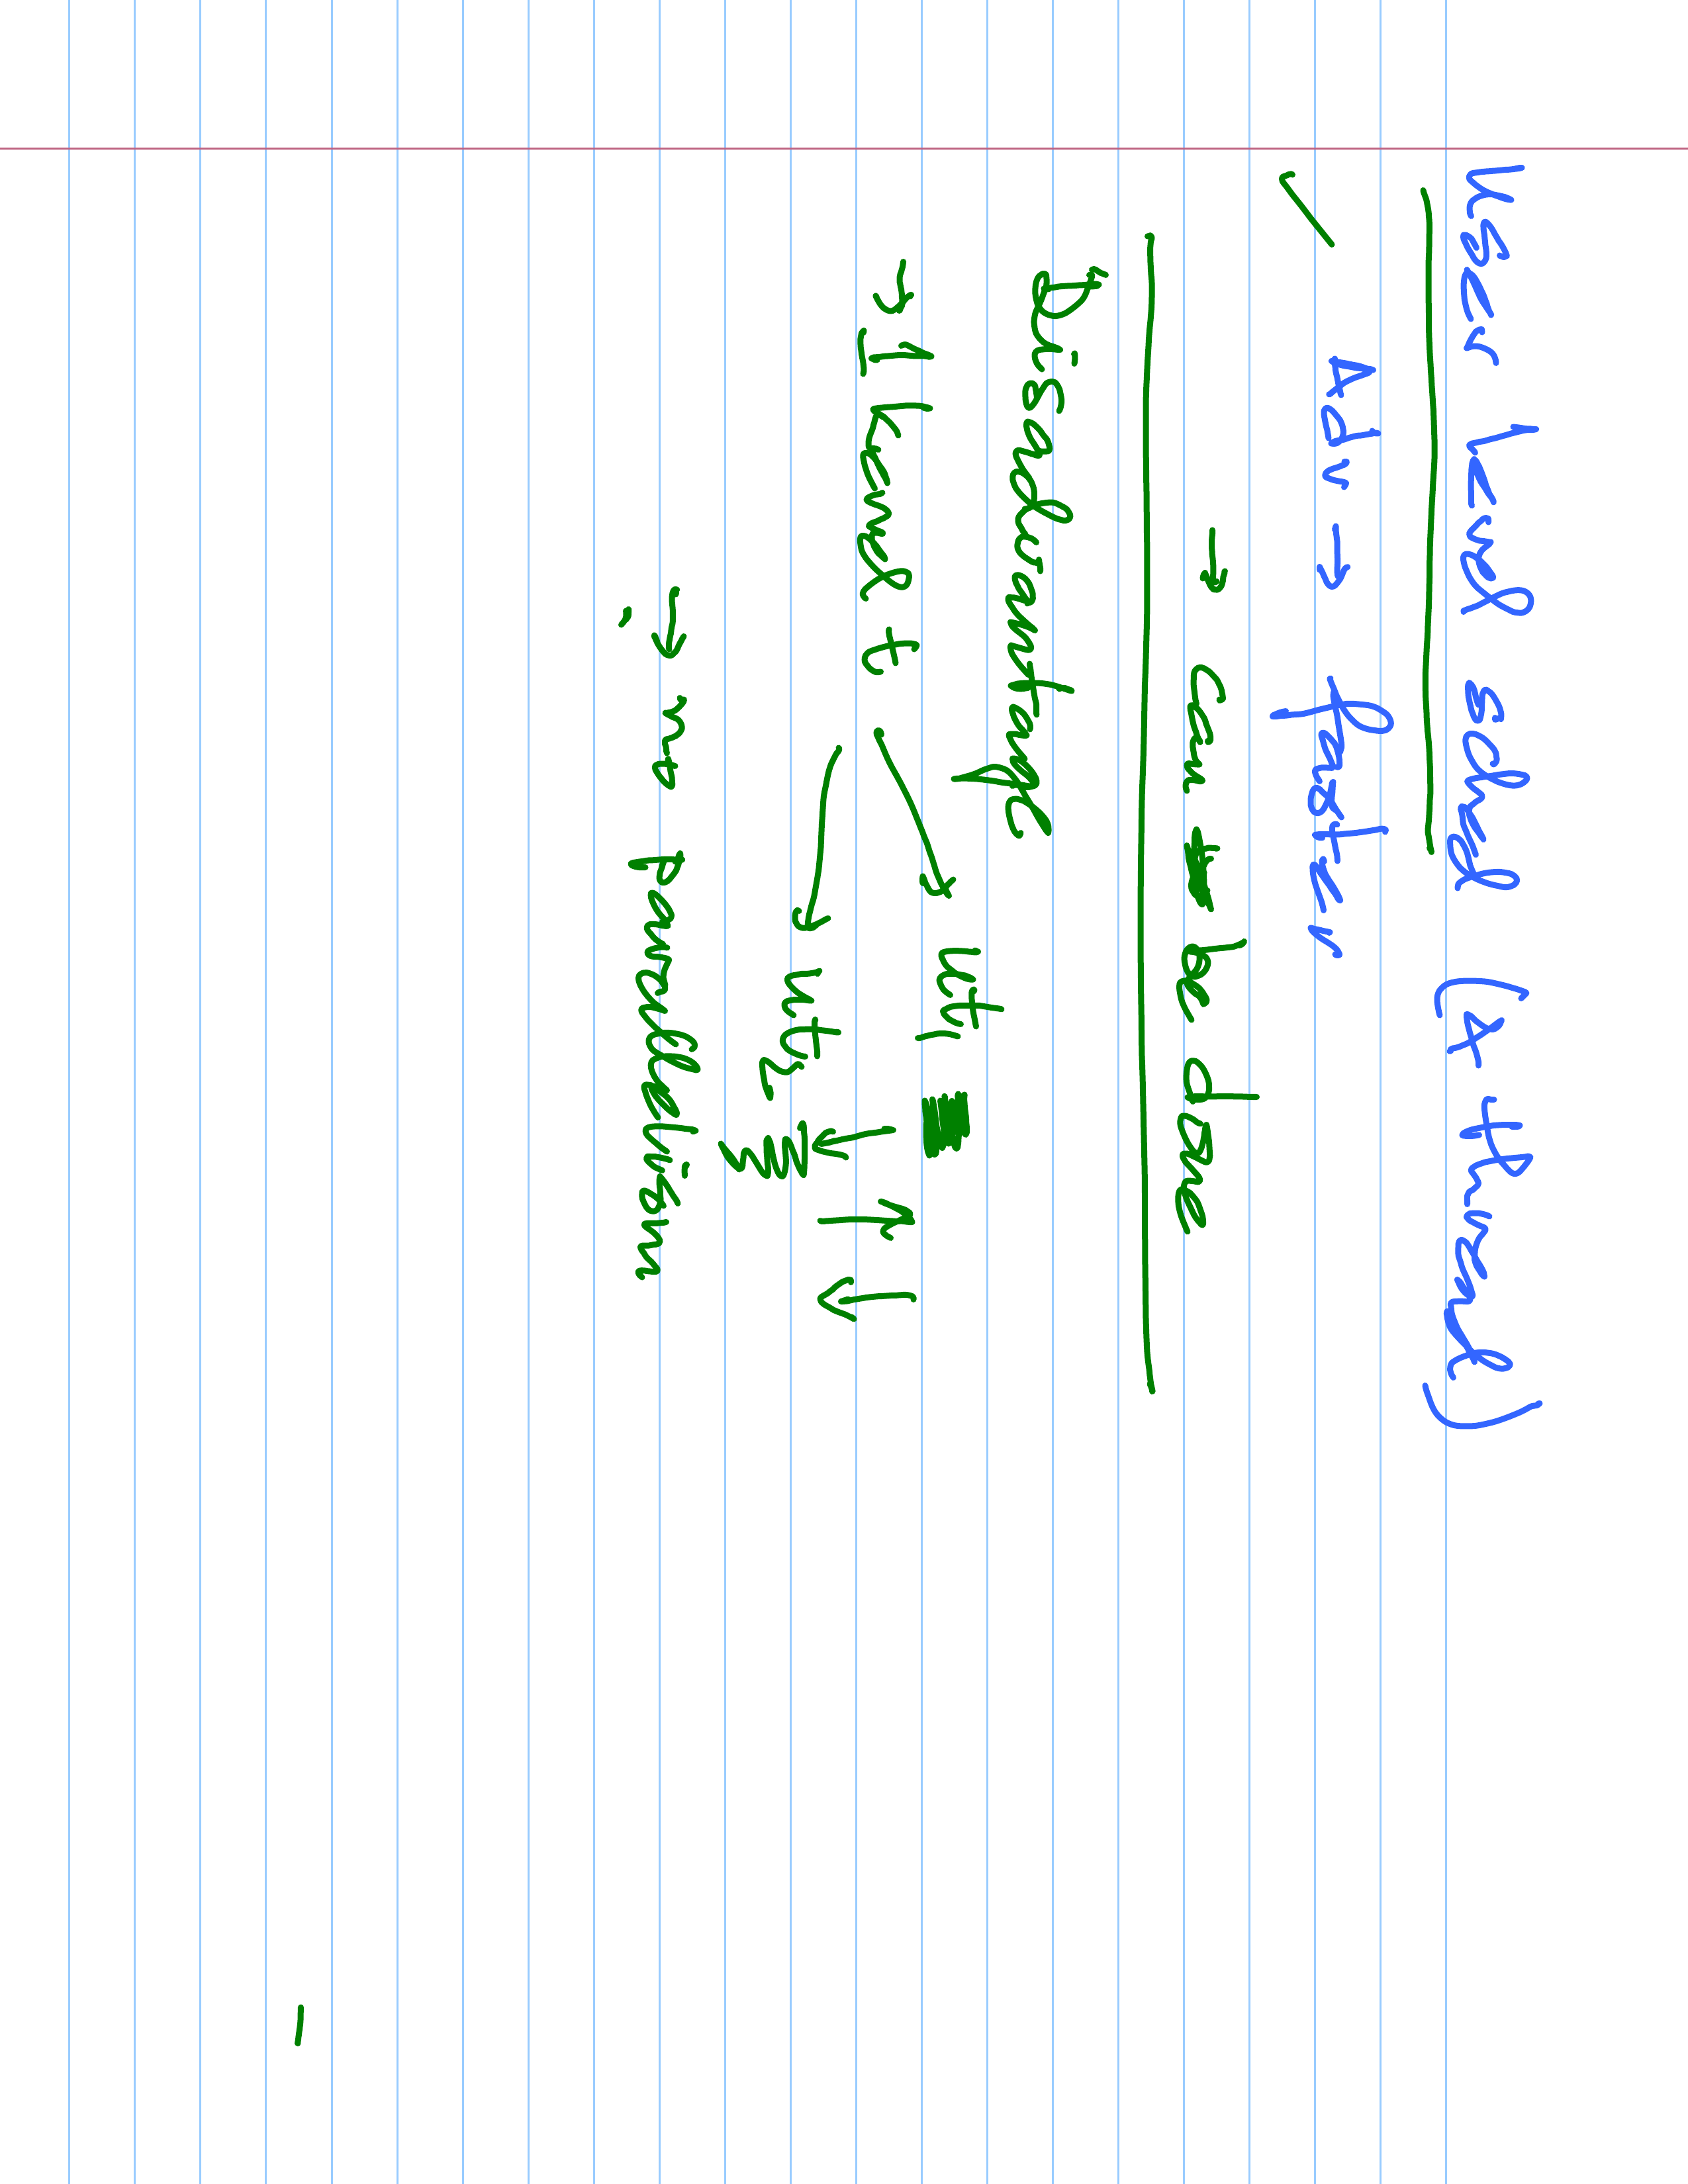 User level sched (x thread)
Adv → faster
→ Can be done
Disadvantage
→ 1 kernel t
ut1
ut2
→ no parallelism